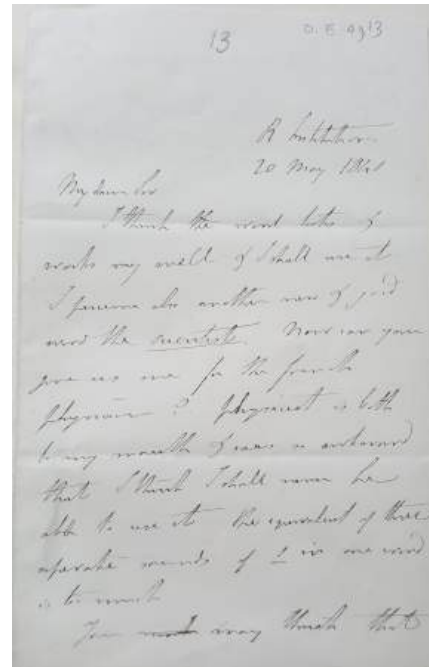 13
R Institution
20 May 1840
My dear Sir
I think the word
works very well & I shall use it
I perceive also another new & good
word the scientist. Now can you
give us one for the french
physicien? Physicist is both
to my mouth & ears so awkward
that I think I shall never be
able to use it. The equivalent of three
separate sounds of i in one word
is too much
You may think that